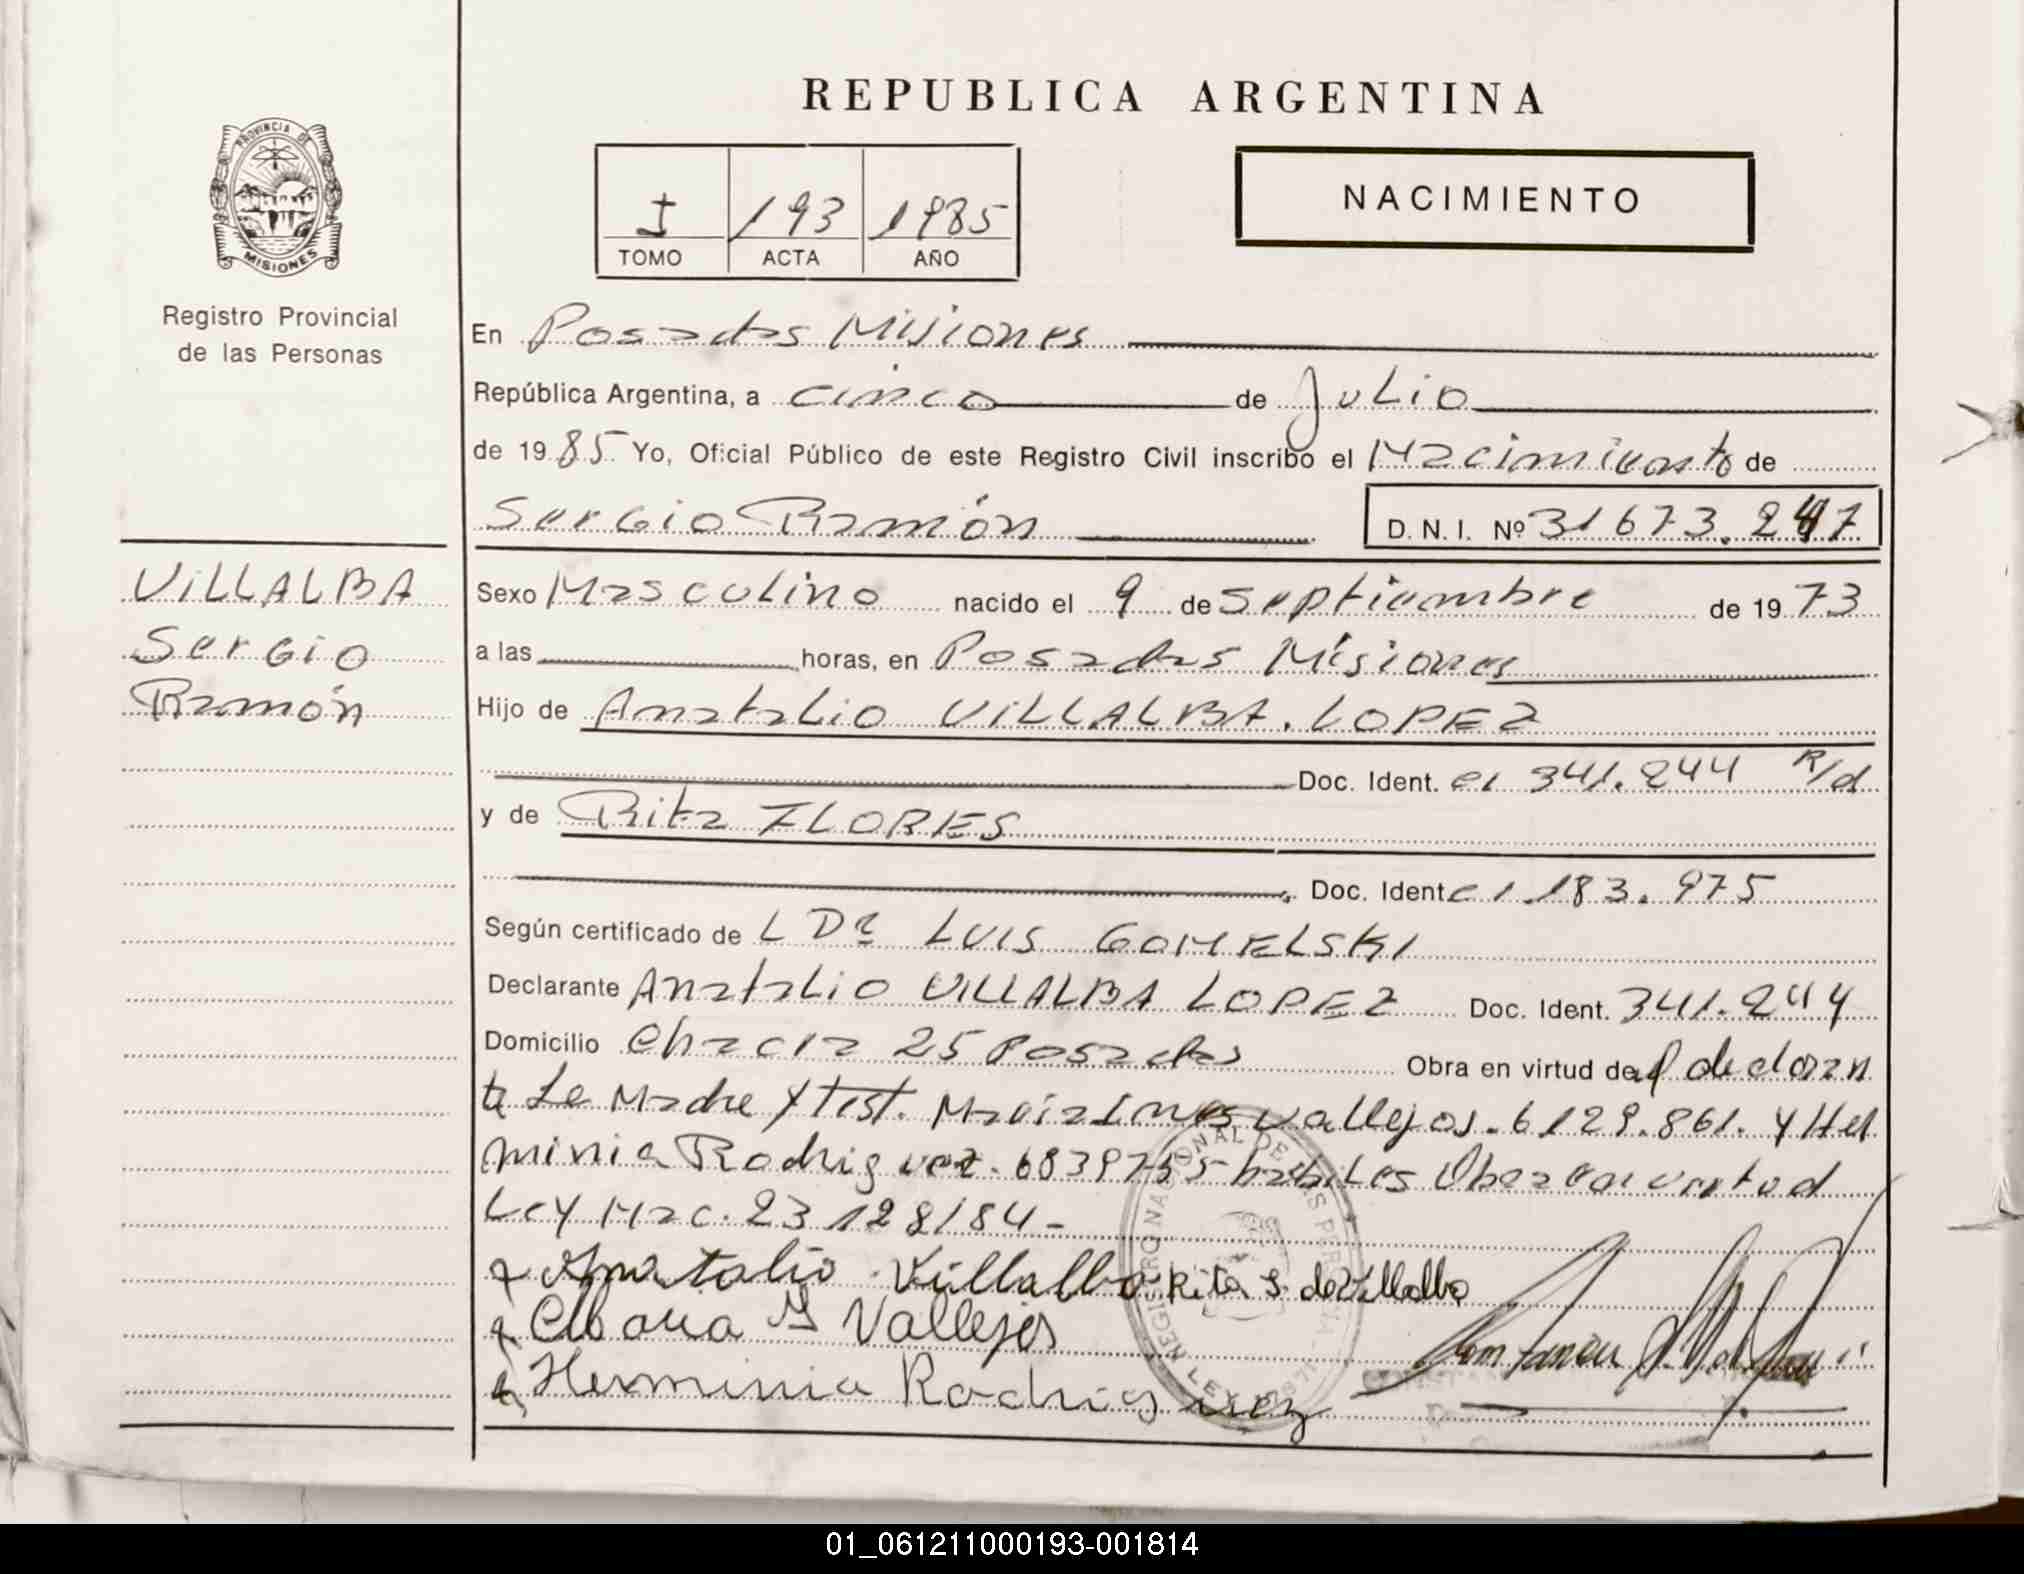 REPUBLICA ARGENTINA
PROVINCIA DE MISIONES
Registro Provincial
de las Personas
I 193 1985
TOMO ACTA AÑO
NACIMIENTO
En Posadas Misiones
República Argentina, a cinco de Julio
de 1985 Yo, Oficial Público de este Registro Civil inscribo el Nacimiento de
Sergio Ramón D.N.I. Nº 31673.247
VILLALBA
Sergio
Ramón
Sexo Masculino nacido el 9 de Septiembre de 1973
a las horas, en Posadas Misiones
Hijo de Anatalio VILLALBA. LOPEZ
Doc. Ident. CI 341.244 R/d
y de Rita FLORES
Doc. Ident CI 183.975
Según certificado de L Dr LUIS GOMELSKI
Declarante Anatalio VILLALBA LOPEZ Doc. Ident. 341.244
Domicilio Chacra 25 Posadas Obra en virtud del declaran
te La Madre y Test. Vallejos. 6129.861. y Her
minia Rodriguez. 6839755 habiles Obra en virtud
Ley Nac. 23128/84-
Anatalio Villalba Rita F. de Villalba
Vallejos
Herminia Rodriguez
REGISTRO NACIONAL DE LAS PERSONAS
LEY
01_061211000193-001814